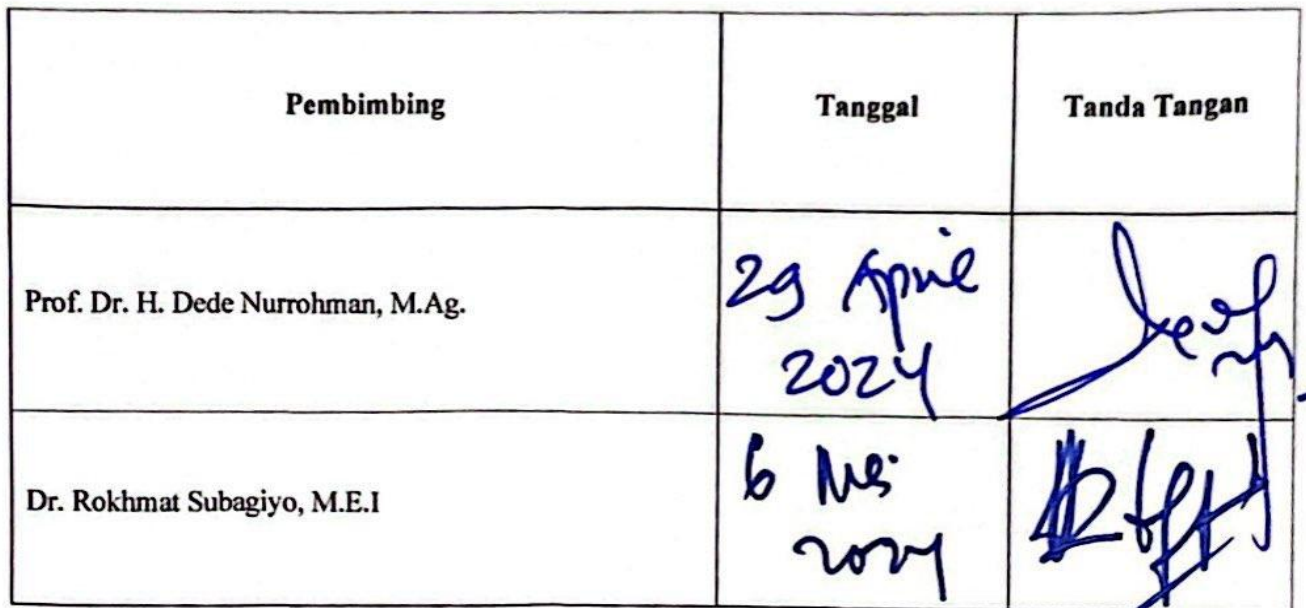 Pembimbing Tanggal Tanda Tangan
Prof. Dr. H. Dede Nurrohman, M.Ag. 29 April
2024
Dr. Rokhmat Subagiyo, M.E.I 6 Mei
2024